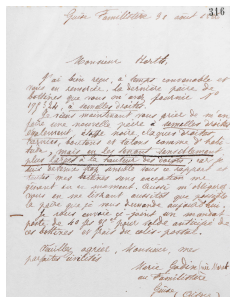 316
Guise Familistère 31 août 18
Monsieur Barth
J'ai bien reçu, à temps convenable et
vous en remercie, la dernière paire de
bottines que vous m'avez fournie No
à semelles droites.
Je viens maintenant vous prier de m'en
faire une nouvelle paire à semelles droites
étoffe noire, claques droites
vernies, boutons et talons comme d'habi-
tude, mais en les tenant sensiblement
plus larges à la hauteur des doigts; car je
suis devenue trop sensible sous ce rapport et
toutes mes bottines sont une
gênant en ce moment. Aussi m'obligerez
vous en me livrant aussitôt que possible
la paire que je vous demande aujourd'hui.
Je vous envoie ci-joint un mandat-
poste de pour solde
de bottines et frais de colis-postal.
Veuillez agréer, Monsieur, mes
parfaites civilités
Marie Godin née Moret
au Familistère
Guise
(Aisne)